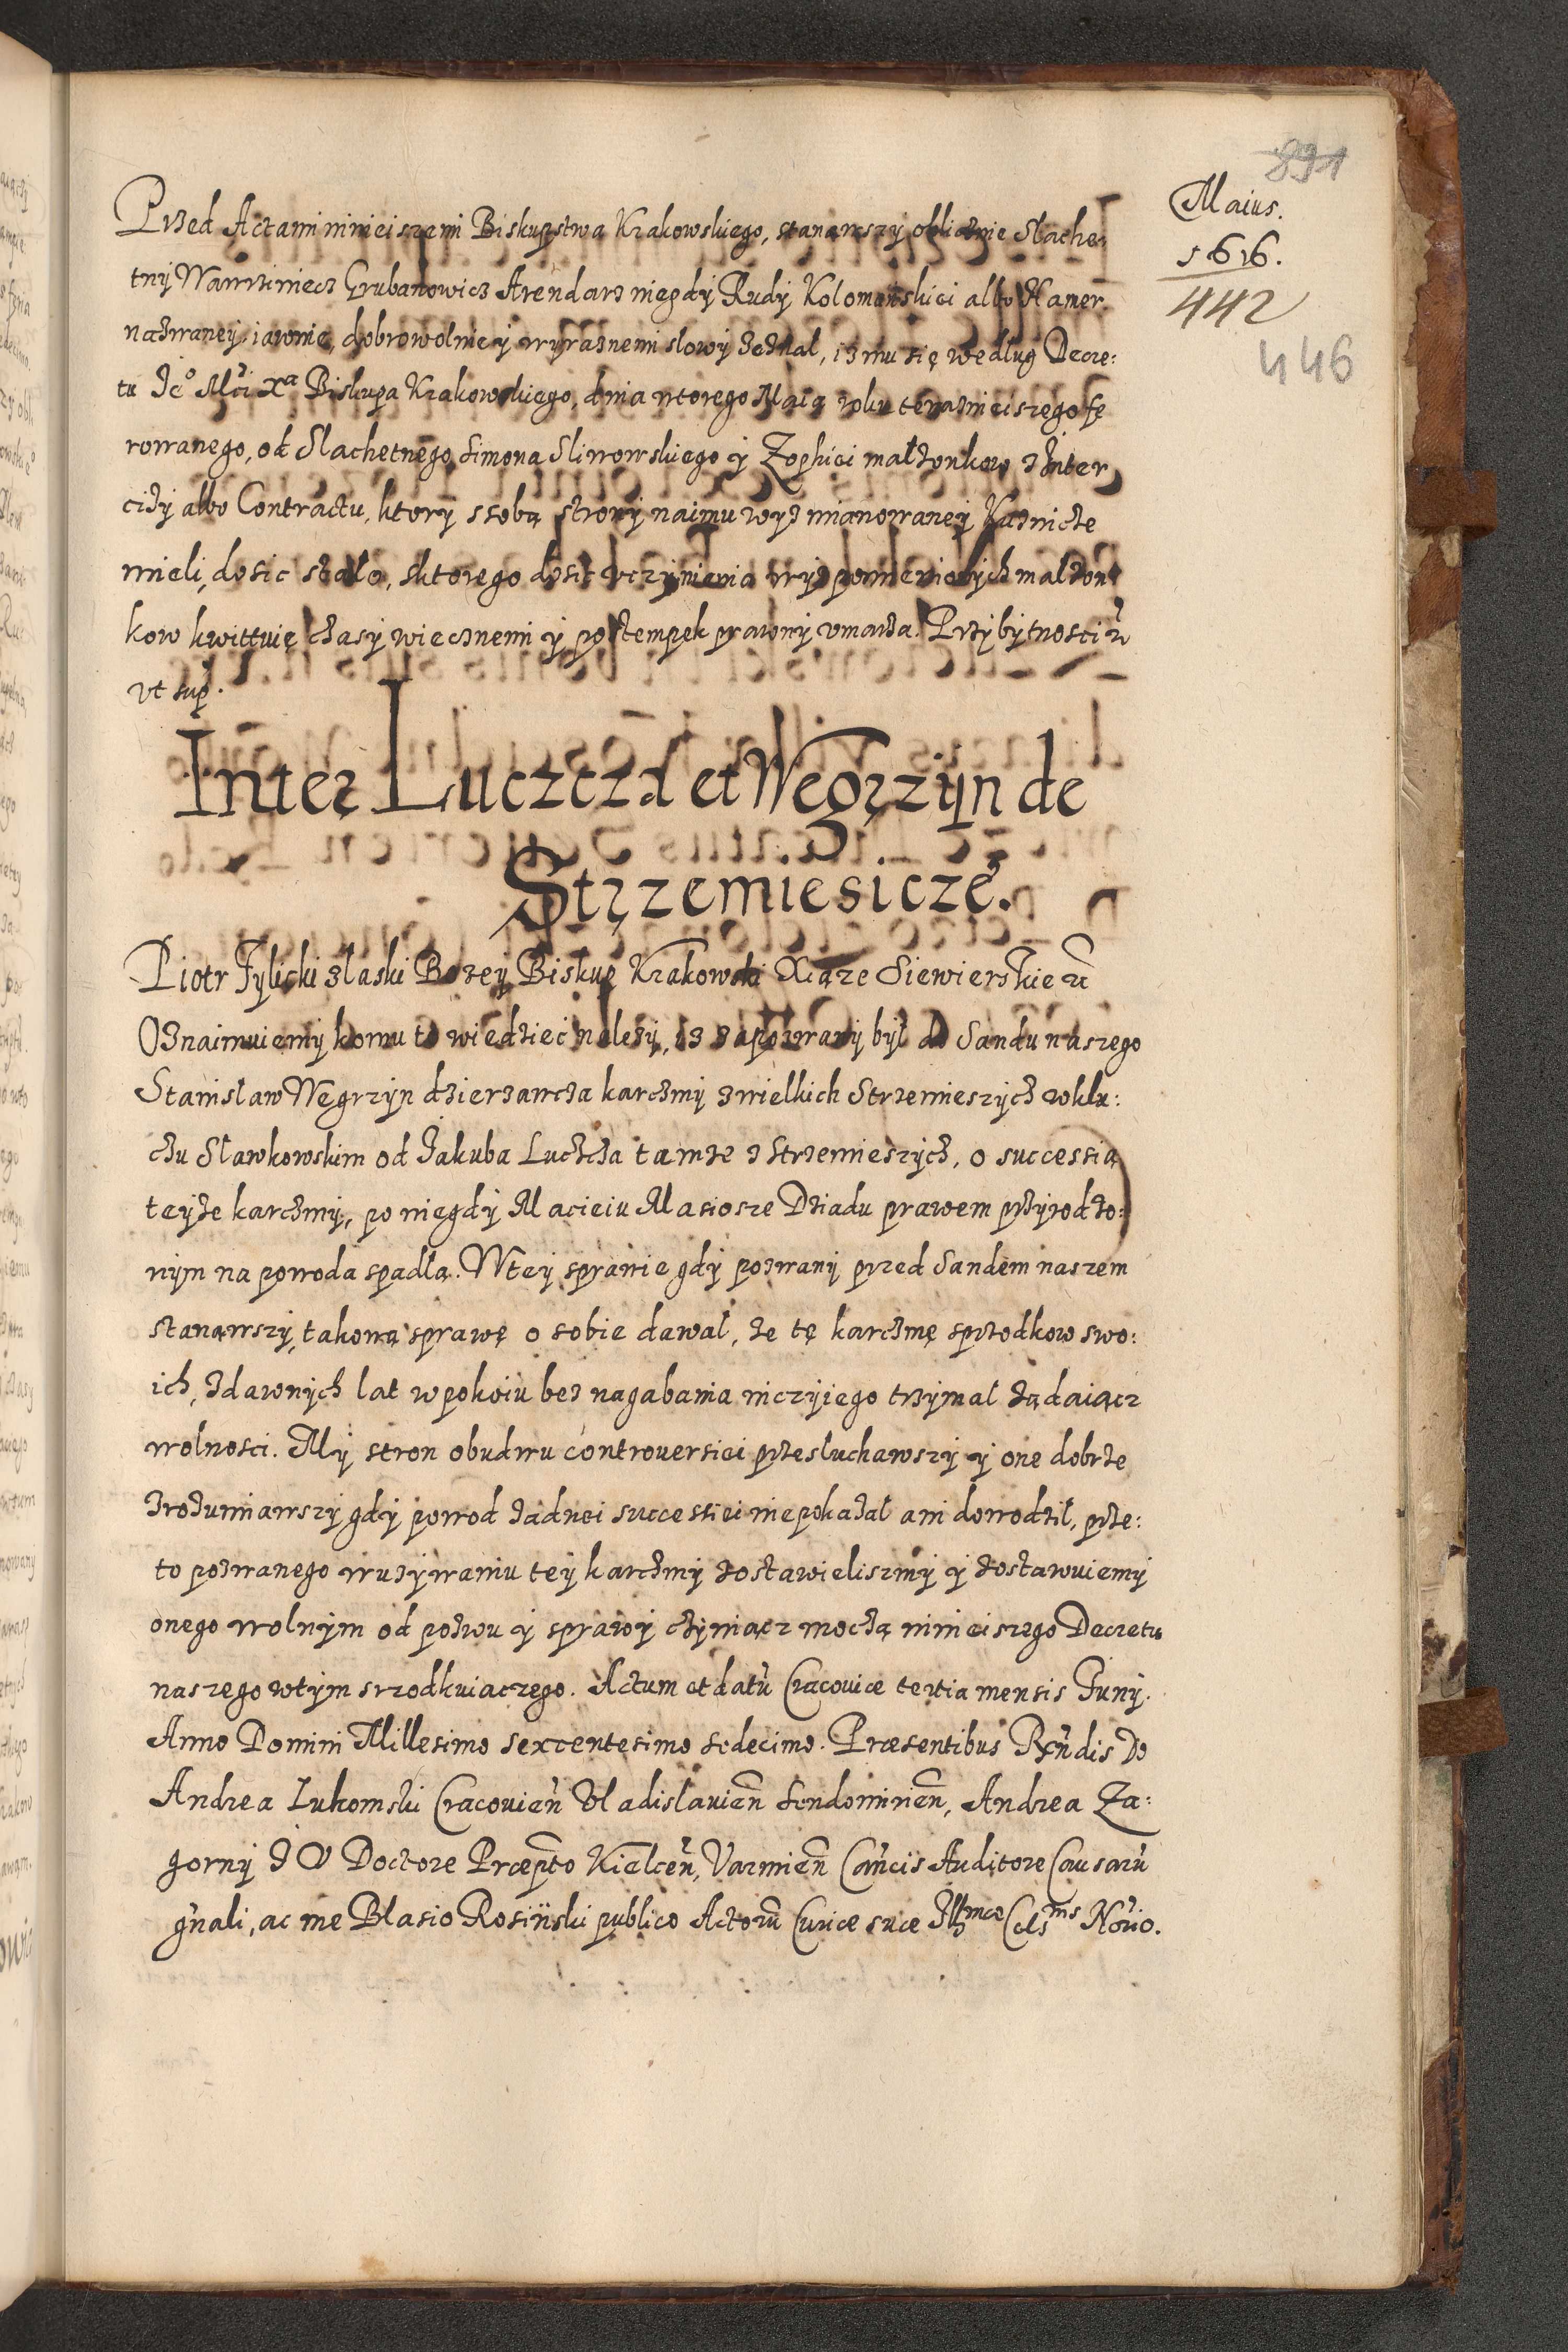 891
Maius.
1616.
442
446
Przed Actami ninieiszemi Biskupstwa Krakowskiego, stanąwszÿ oblicznie Slache,
tnÿ Wawrziniecz Grubanowicz Arendarz niegdÿ Rudÿ Kolomanskiei albo Hamer
nazwaneÿ, iawnie, dobrowolnie ÿ wyraznemi slowÿ zeznal, iz mu się wedlug Decre:
tu Ieº Mći Xª Biskupa Krakowskiego, dnia wtorego Maia roku teraznieiszego fe
rowanego, od Slachetnego Simona Sliwowskiego ÿ Zophiei malzonkow z Inter
cizÿ albo Contractu, ktorÿ s sobą stronÿ naimu wyz mianowaneÿ Kuznicze
mieli, dosic stalo, s ktorego dosic uczÿnienia wyz pomienionÿch malzon
kow kwittuię czasÿ wiecznemi ÿ postempek prawnÿ vmarza. Przÿ bÿtnosci ũ
vt sup.
Inter Luczcza et Węgrzÿn de
Strzemiesicze.
Piotr Tÿlicki z laski Bozeÿ Biskup Krakowski Xiąze Siewierskie ũ
Oznaimuiemÿ komu to wiedziec nalezÿ, iz zapozwanÿ bÿl do Sandu naszego
Stanislaw Węgrzÿn dzierzawcza karczmÿ z wielkich Strzemieszÿcz w klu:
czu Slawkowskim od Jakuba Luczcza tamze z Strzemieszÿcz, o successią
teÿze karczmÿ, po niegdÿ Macieiu Masiosze Dziadu prawem przÿrodzo:
nÿm na powoda spadlą. W teÿ sprawie gdÿ pozwanÿ przed Sandem naszem
stanąwszÿ, takową sprawę o sobie dawal, ze tę karczmę s przodkow swo:
ich, z dawnÿch lat w pokoiu bez nagabania niczÿiego trzÿmal ządaiącz
wolnosci. Mÿ stron obudwu controuersiei przesluchawszÿ ÿ one dobrze
zrozumiawszÿ gdÿ powod zadnei successiei nie pokazal ani dowodzil, prze:
to pozwanego w uzÿwaniu teÿ karczmÿ zostawielismÿ ÿ zostawuiemÿ
onego wolnÿm od pozwu ÿ sprawÿ czÿniącz moczą ninieiszego Decretu
naszego w tÿm srzodkuiaczego. Actum et datũ Cracoviæ tertia mensis Junÿ.
Anno Domini Millesimo sexcentesimo sedecimo. Præsentibus Rñdis Do
Andrea Lukomski Cracouieñ Vladislauieñ Sendomirieñ, Andrea Za:
gornÿ I V Doctore Præpto Kielceñ, Varmieñ Cañcis Auditore Causarũ
gñali, ac me Blasio Rosiński publico Actorũ Curiæ suæ Illmæ Celsms Nõrio.